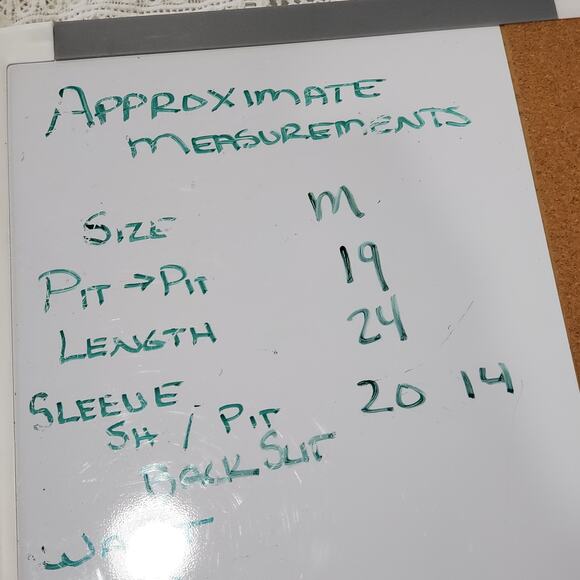 APPROXIMATE
MEASUREMENTS
SIZE M
PIT → PIT 19
LENGTH 24
SLEEVE 20 14
SH / PIT
BACK SLIT